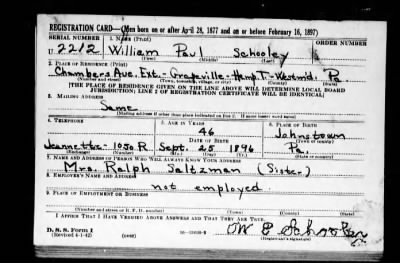 REGISTRATION CARD—(Men born on or after April 28, 1877 and on or before February 16, 1897)
SERIAL NUMBER 1. NAME (Print)
U 2212 William Paul Schooley
(First) (Middle) (Last)
2. PLACE OF RESIDENCE (Print)
Chambers Ave. Ext.-Grapeville-Hemp.T.-Westmd. Pa
(Number and street) (Town, township, village, or city) (County) (State)
[THE PLACE OF RESIDENCE GIVEN ON THE LINE ABOVE WILL DETERMINE LOCAL BOARD
JURISDICTION; LINE 2 OF REGISTRATION CERTIFICATE WILL BE IDENTICAL]
3. MAILING ADDRESS
Same
[Mailing address if other than place indicated on line 2. If same insert word same]
4. TELEPHONE 5. AGE IN YEARS 6. PLACE OF BIRTH
46 Johnstown
DATE OF BIRTH (Town or county)
Jeannette-1050R Sept. 25 1896 Pa.
(Exchange) (Number) (Mo.) (Day) (Yr.) (State or country)
7. NAME AND ADDRESS OF PERSON WHO WILL ALWAYS KNOW YOUR ADDRESS
Mrs. Ralph Saltzman (Sister)
8. EMPLOYER'S NAME AND ADDRESS
not employed
9. PLACE OF EMPLOYMENT OR BUSINESS
(Number and street or R. F. D. number) (Town) (County) (State)
I AFFIRM THAT I HAVE VERIFIED ABOVE ANSWERS AND THAT THEY ARE TRUE.
D. S. S. Form 1
(Revised 4-1-42) (over)
(Registrant's signature)